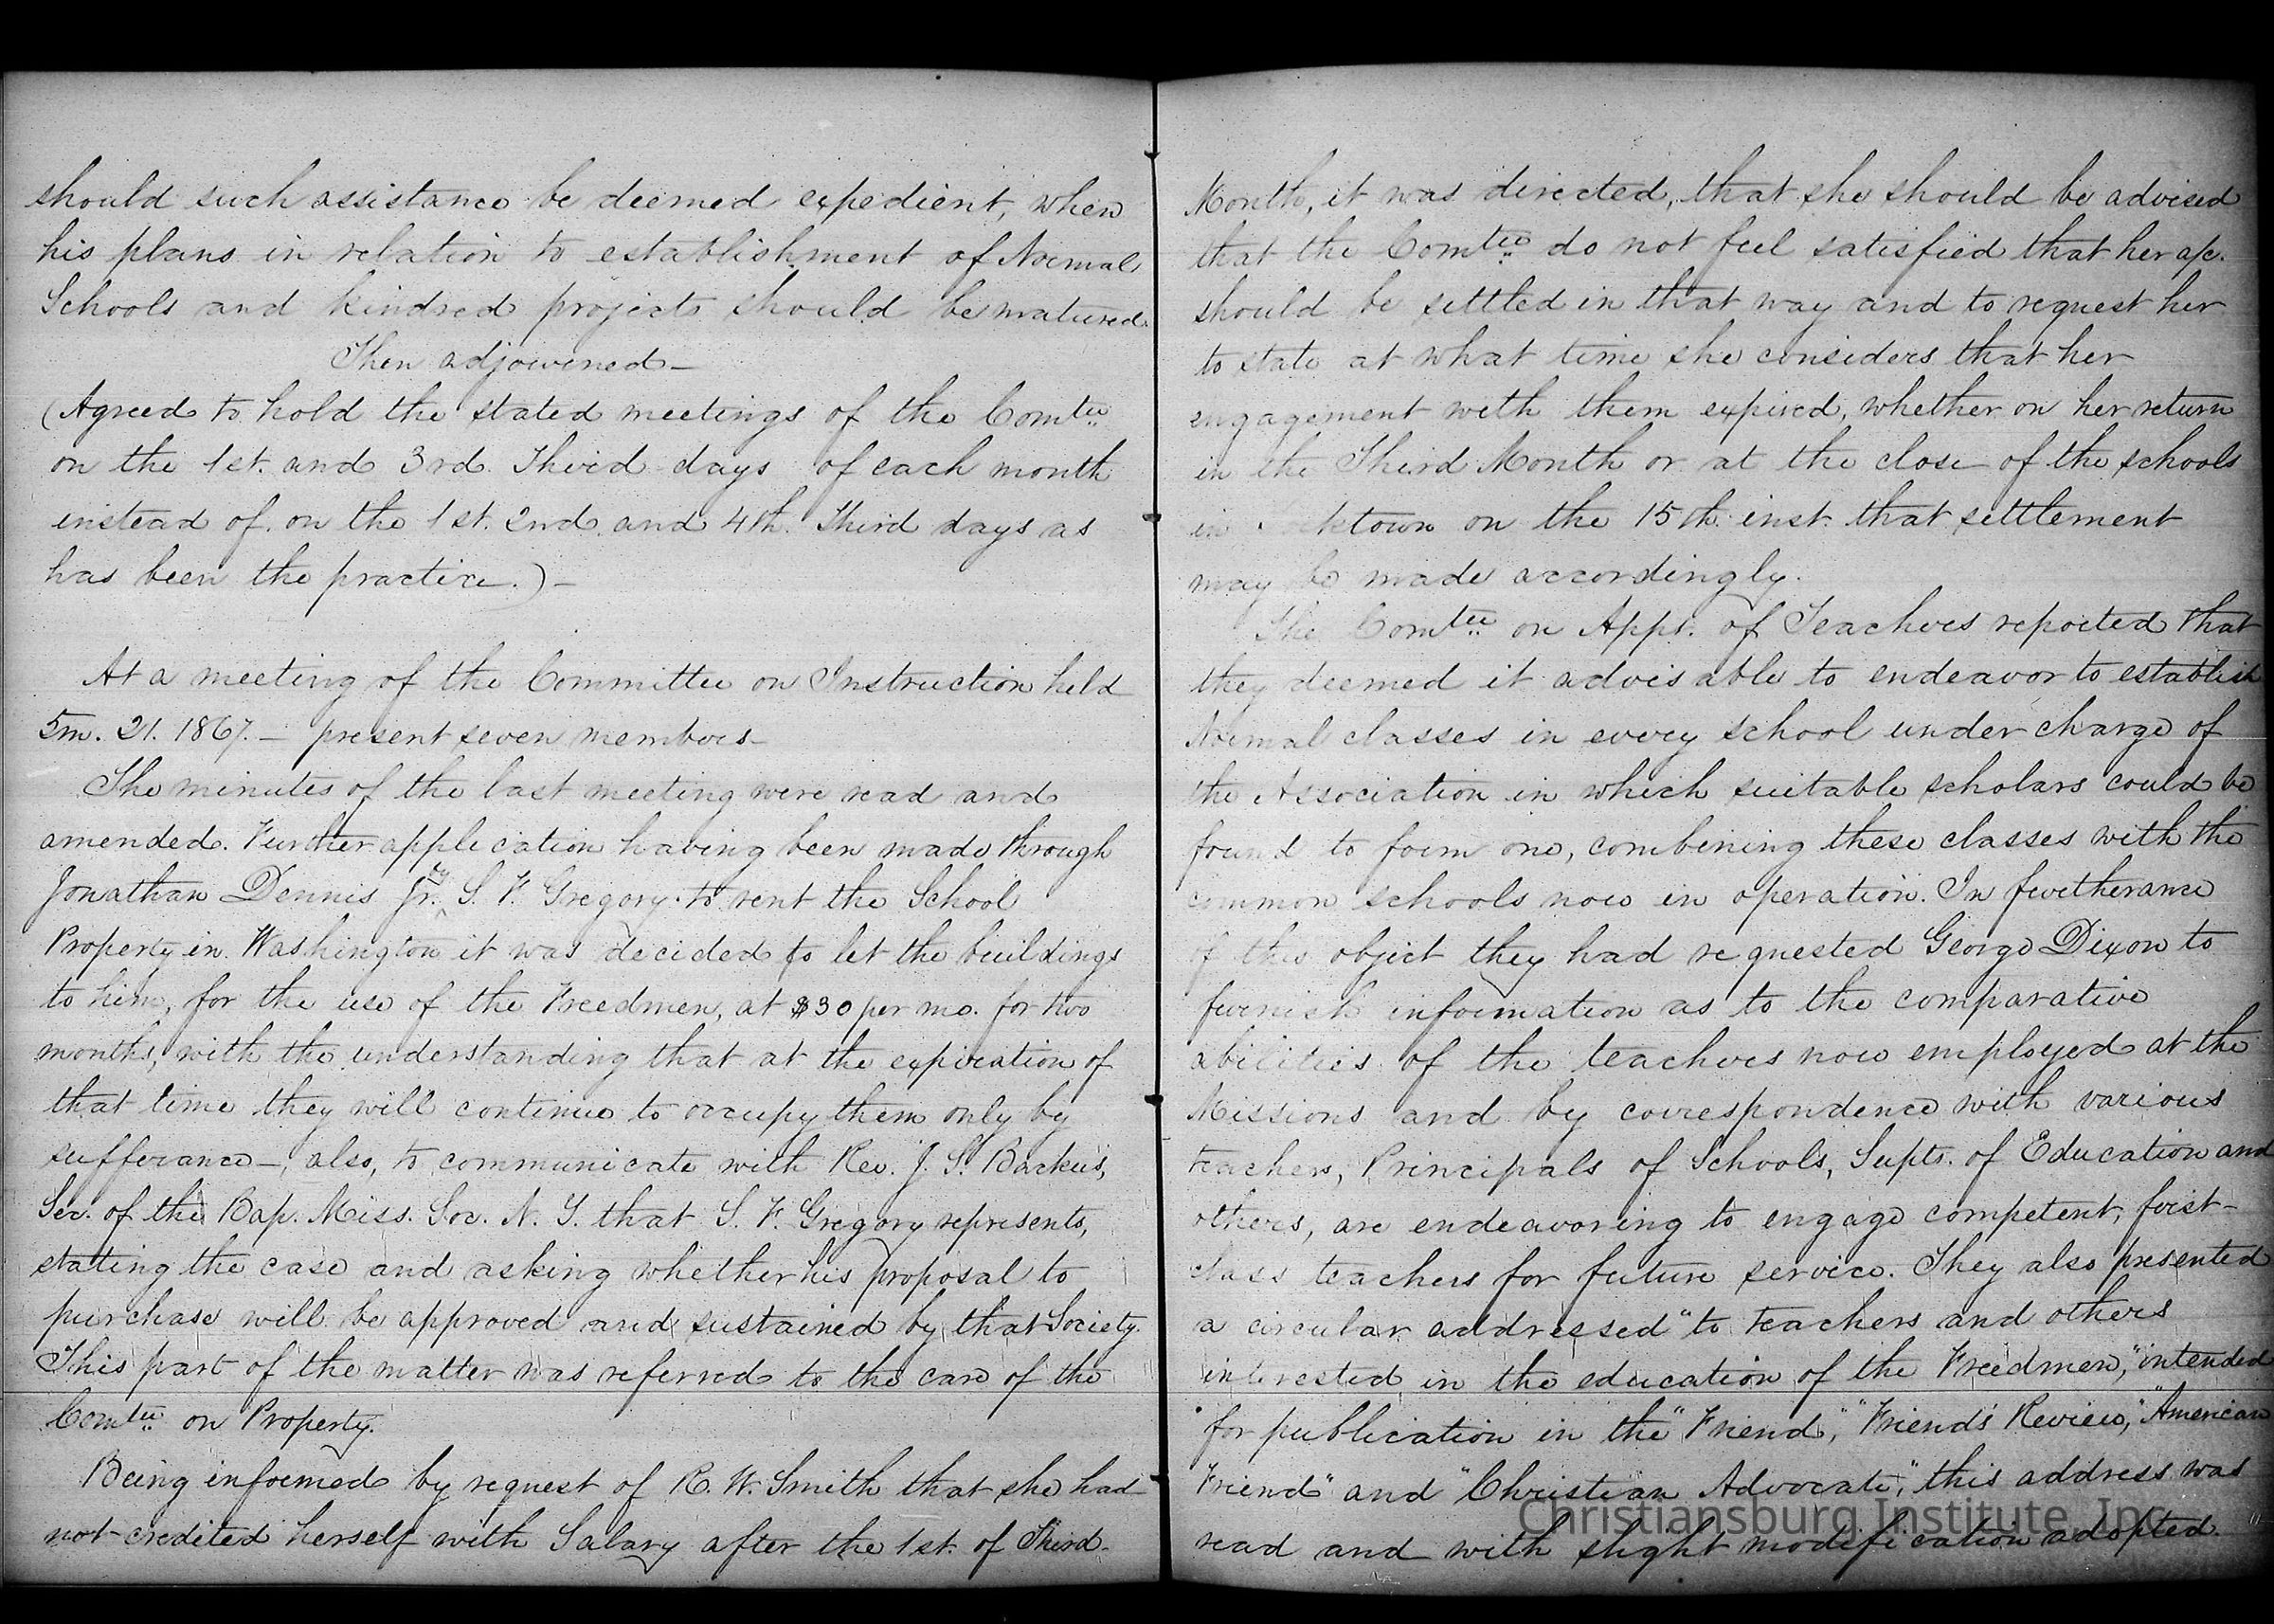 should such assistance be deemed expedient, when
his plans in relation to establishment of Normal
Schools and kindred projects should be matured.
Then adjourned—
(Agreed to hold the stated meetings of the Comtee
on the 1st. and 3rd. Third days of each month
instead of on the 1st. 2nd. and 4th. Third days as
has been the practice.)—
At a meeting of the Committee on Instruction held
5m. 21. 1867.— present seven members—
The minutes of the last meeting were read and
amended. Further application having been made through
Jonathan Dennis Jr. by S. F. Gregory to rent the School
Property in Washington it was decided to let the buildings
to him, for the use of the Freedmen, at $30 per mo. for two
months, with the understanding that at the expiration of
that time they will continue to occupy them only by
sufferance—, also, to communicate with Rev. J. S. Backus,
Sec. of the Bap. Miss. Soc. N. Y. that S. F. Gregory represents,
stating the case and asking whether his proposal to
purchase will be approved and sustained by that Society.
This part of the matter was referred to the care of the
Comtee on Property.
Being informed by request of R. W. Smith that she had
not credited herself with Salary after the 1st. of Third
Month, it was directed, that she should be advised
that the Comtee do not feel satisfied that her a/c.
should be settled in that way and to request her
to state at what time she considers that her
engagement with them expired, whether on her return
in the Third Month or at the close of the schools
in town on the 15th. inst. that settlement
may be made accordingly.
The Comtee on Apps. of Teachers reported that
they deemed it advisable to endeavor to establish
Normal classes in every school under charge of
the Association in which suitable scholars could be
found to form one, combining these classes with the
common schools now in operation. In furtherance
of this object they had requested George Dixon to
furnish information as to the comparative
abilities of the teachers now employed at the
Missions and by correspondence with various
teachers, Principals of Schools, Supts. of Education and
others, are endeavoring to engage competent, first-
class teachers for future service. They also presented
a circular addressed "to teachers and others
interested in the education of the Freedmen," intended
for publication in the "Friend," "Friends' Review," "American
Friend" and "Christian Advocate," this address was
read and with slight modification adopted.
Christiansburg Institute, Inc.